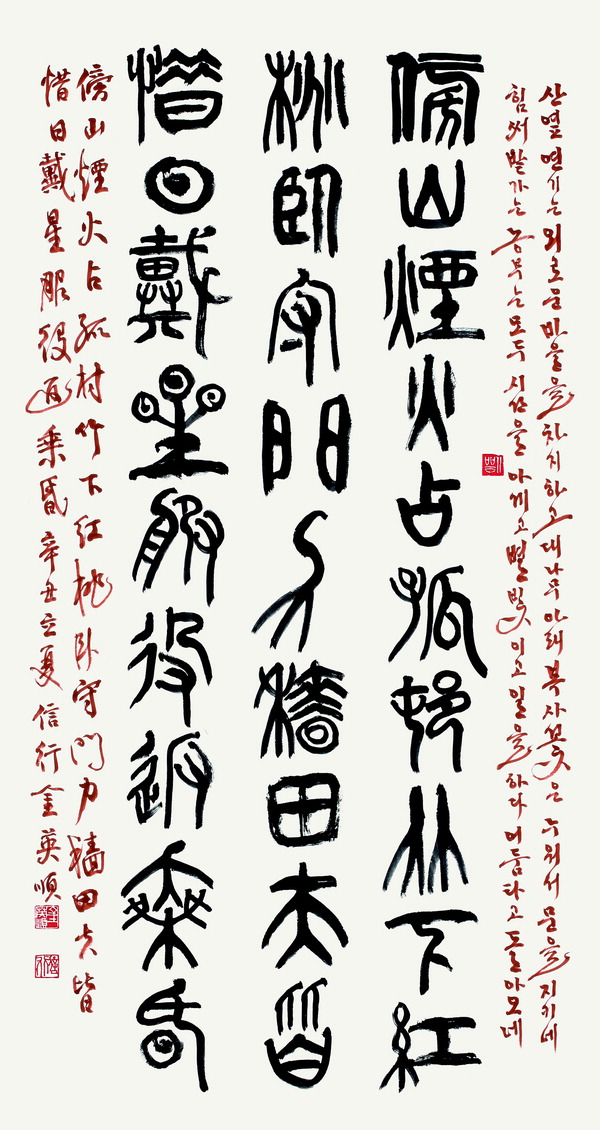 산옆 연기는 외로운 마을을 차지하고 대나무 아래 복사꽃은 누워서 문을 지키네
힘써 밭가는 농부는 모두 시간을 아끼고 별빛 이고 일을 하다 어둠타고 돌아오네
傍山煙火占孤村竹下紅
桃臥守門力穡田夫皆
惜日戴星服役返乘昏
傍山煙火占孤村竹下红桃臥守門力穡田夫皆
惜日戴星服役返乘昏 辛丑立夏 信行 金英順